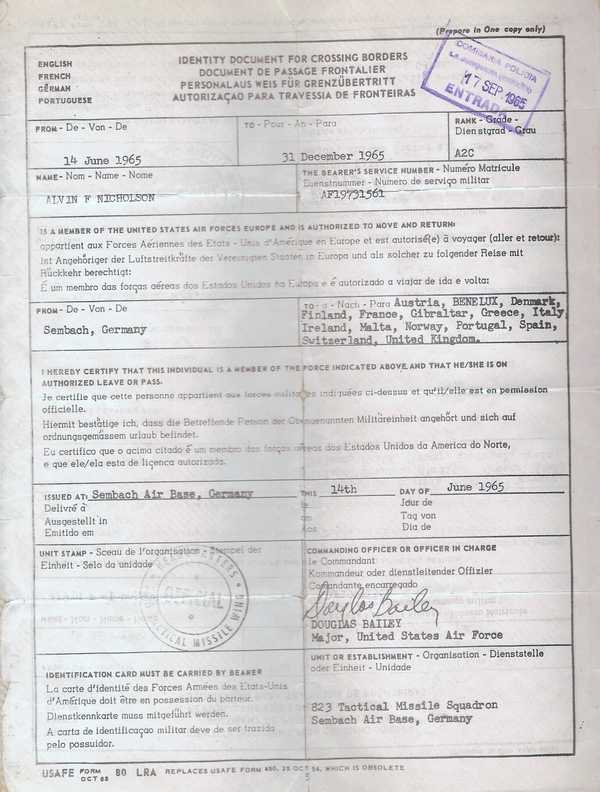 (Prepare in One copy only)
ENGLISH
FRENCH
GERMAN
PORTUGUESE
IDENTITY DOCUMENT FOR CROSSING BORDERS
DOCUMENT DE PASSAGE FRONTALIER
PERSONALAUS WEIS FÜR GRENZÜBERTRITT
AUTORIZAÇAO PARA TRAVESSIA DE FRONTEIRAS
COMISARIA POLICIA
17 SEP 1965
ENTRADA
FROM - De - Von - De
14 June 1965
TO - Pour - An - Para
31 December 1965
RANK - Grade -
Dienstgrad - Grau
A2C
NAME - Nom - Name - Nome
ALVIN F NICHOLSON
THE BEARER'S SERVICE NUMBER - Numéro Matricule
Dienstnummer - Numero de serviço militar
AF19731561
IS A MEMBER OF THE UNITED STATES AIR FORCES EUROPE AND IS AUTHORIZED TO MOVE AND RETURN:
appartient aux Forces Aériennes des Etats - Unis d'Amérique en Europe et est autorisé(e) à voyager (aller et retour):
Ist Angehöriger der Luftstreitkräfte der Vereinigten Staaten in Europa und als solcher zu folgender Reise mit
Rückkehr berechtigt:
É um membro das forças aéreas dos Estados Unidos na Europa e é autorizado a viajar de ida e volta:
FROM - De - Von - De
Sembach, Germany
To - a - Nach - Para Austria, BENELUX, Denmark,
Finland, France, Gibraltar, Greece, Italy
Ireland, Malta, Norway, Portugal, Spain,
Switzerland, United Kingdom.
I HEREBY CERTIFY THAT THIS INDIVIDUAL IS A MEMBER OF THE FORCE INDICATED ABOVE, AND THAT HE/SHE IS ON
AUTHORIZED LEAVE OR PASS.
Je certifie que cette personne appartient aux forces militaires indiquées ci-dessus et qu'il/elle est en permission
officielle.
Hiermit bestätige ich, dass die Betreffende Person der Obengenannten Militäreinheit angehört und sich auf
ordnungsgemässem urlaub befindet.
Eu certifico que o acima citado é um membro das forças aéreas dos Estados Unidos da America do Norte,
e que ele/ela esta de liçenca autorizada.
ISSUED AT: Sembach Air Base, Germany
Délivré à
Ausgestellt in
Emitido em
THIS 14th DAY OF June 1965
le Jour de
am Tag von
aos Dia de
UNIT STAMP - Sceau de l'organisation - Stempel der
Einheit - Selo da unidade
HEADQUARTERS
OFFICIAL
TACTICAL MISSILE WING
COMMANDING OFFICER OR OFFICER IN CHARGE
le Commandant
Kommandeur oder dienstleitender Offizier
Comandante encarregado
Douglas Bailey
DOUGLAS BAILEY
Major, United States Air Force
IDENTIFICATION CARD MUST BE CARRIED BY BEARER
La carte d'Identité des Forces Armées des Etats-Unis
d'Amérique doit être en possession du porteur.
Dienstkennkarte muss mitgeführt werden.
A carta de identificaçao militar deve de ser trazida
pelo possuidor.
UNIT OR ESTABLISHMENT - Organisation - Dienststelle
oder Einheit - Unidade
823 Tactical Missile Squadron
Sembach Air Base, Germany
USAFE FORM OCT 63 80 LRA REPLACES USAFE FORM 480, 25 OCT 56, WHICH IS OBSOLETE
5